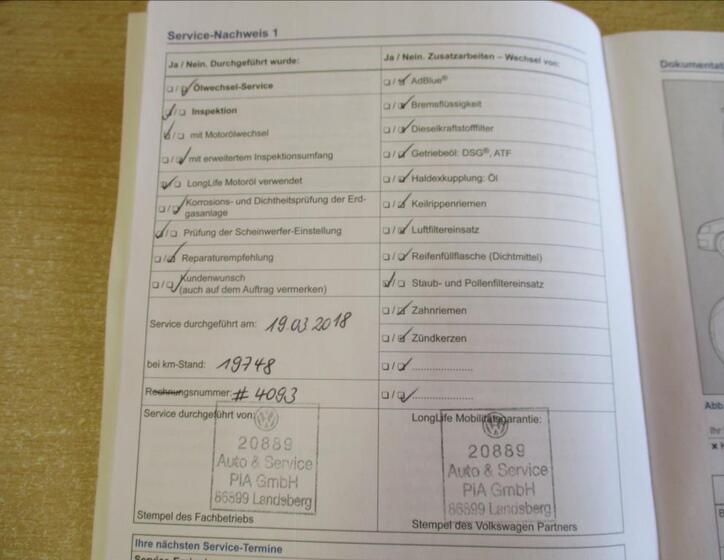 Service-Nachweis 1
Ja / Nein. Durchgeführt wurde:
Ja / Nein. Zusatzarbeiten – Wechsel von:
Ölwechsel-Service
Inspektion
mit Motorölwechsel
mit erweitertem Inspektionsumfang
LongLife Motoröl verwendet
Korrosions- und Dichtheitsprüfung der Erd-
gasanlage
Prüfung der Scheinwerfer-Einstellung
Reparaturempfehlung
Kundenwunsch
(auch auf dem Auftrag vermerken)
Service durchgeführt am: 19.03.2018
bei km-Stand: 19748
Rechnungsnummer: # 4093
AdBlue®
Bremsflüssigkeit
Dieselkraftstofffilter
Getriebeöl: DSG®, ATF
Haldexkupplung: Öl
Keilrippenriemen
Luftfiltereinsatz
Reifenfüllflasche (Dichtmittel)
Staub- und Pollenfiltereinsatz
Zahnriemen
Zündkerzen
Service durchgeführt von:
20889
Auto & Service
PIA GmbH
86899 Landsberg
Stempel des Fachbetriebs
LongLife Mobilitätsgarantie:
20889
Auto & Service
PIA GmbH
86899 Landsberg
Stempel des Volkswagen Partners
Ihre nächsten Service-Termine
Dokumentat
Abb
Ihr